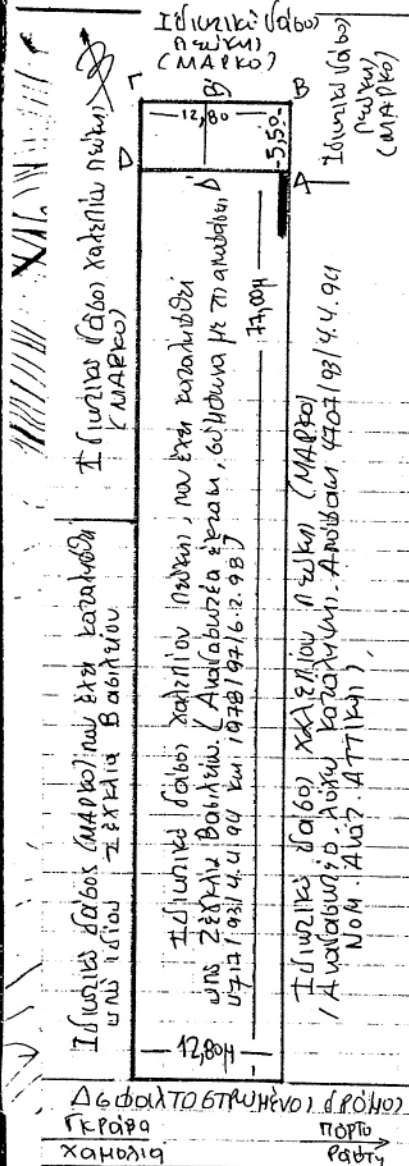 Ιδιωτικό δάσος
πεύκης
(ΜΑΡΚΟ)
Γ
Β'
Β
12,80
5,50
Δ
Α
Ιδιωτικό δάσος
πεύκης
(ΜΑΡΚΟ)
Ιδιωτικό δάσος χαλεπίου πεύκης
(ΜΑΡΚΟ)
Ιδιωτικό δάσος (ΜΑΡΚΟ) που έχει καταληφθεί
υπό ιδίου Ζέκκια Βασιλείου
Ιδιωτικό δάσος χαλεπίου πεύκης, που έχει καταληφθεί
υπό Ζέκκια Βασιλείου. (Αναδασωτέα έκταση, σύμφωνα με τις αποφάσεις
4717/93/4.4.94 και 1978/97/6.2.98)
77,00μ
Ιδιωτικό δάσος χαλεπίου πεύκης (ΜΑΡΚΟ)
(Αναδασωτέο, λόγω κατάληψης. Απόφαση 4707/93/4.4.94
Νομ. Ανατ. Αττικής),
12,80μ
Ασφαλτοστρωμένος δρόμος
Γκράβα
Χαμολιά
ΠΟΡΤΟ
Ράφτη